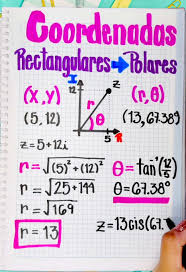 Coordenadas
Rectangulares → Polares
(x, y) (r, θ)
(5, 12) (13, 67.38°)
I
12
z
r
θ
5
R
z = 5 + 12i
r = √(5)² + (12)²
r = √25 + 144
r = √169
r = 13
θ = tan⁻¹(12/5)
θ = 67.38°
z = 13cis(67.